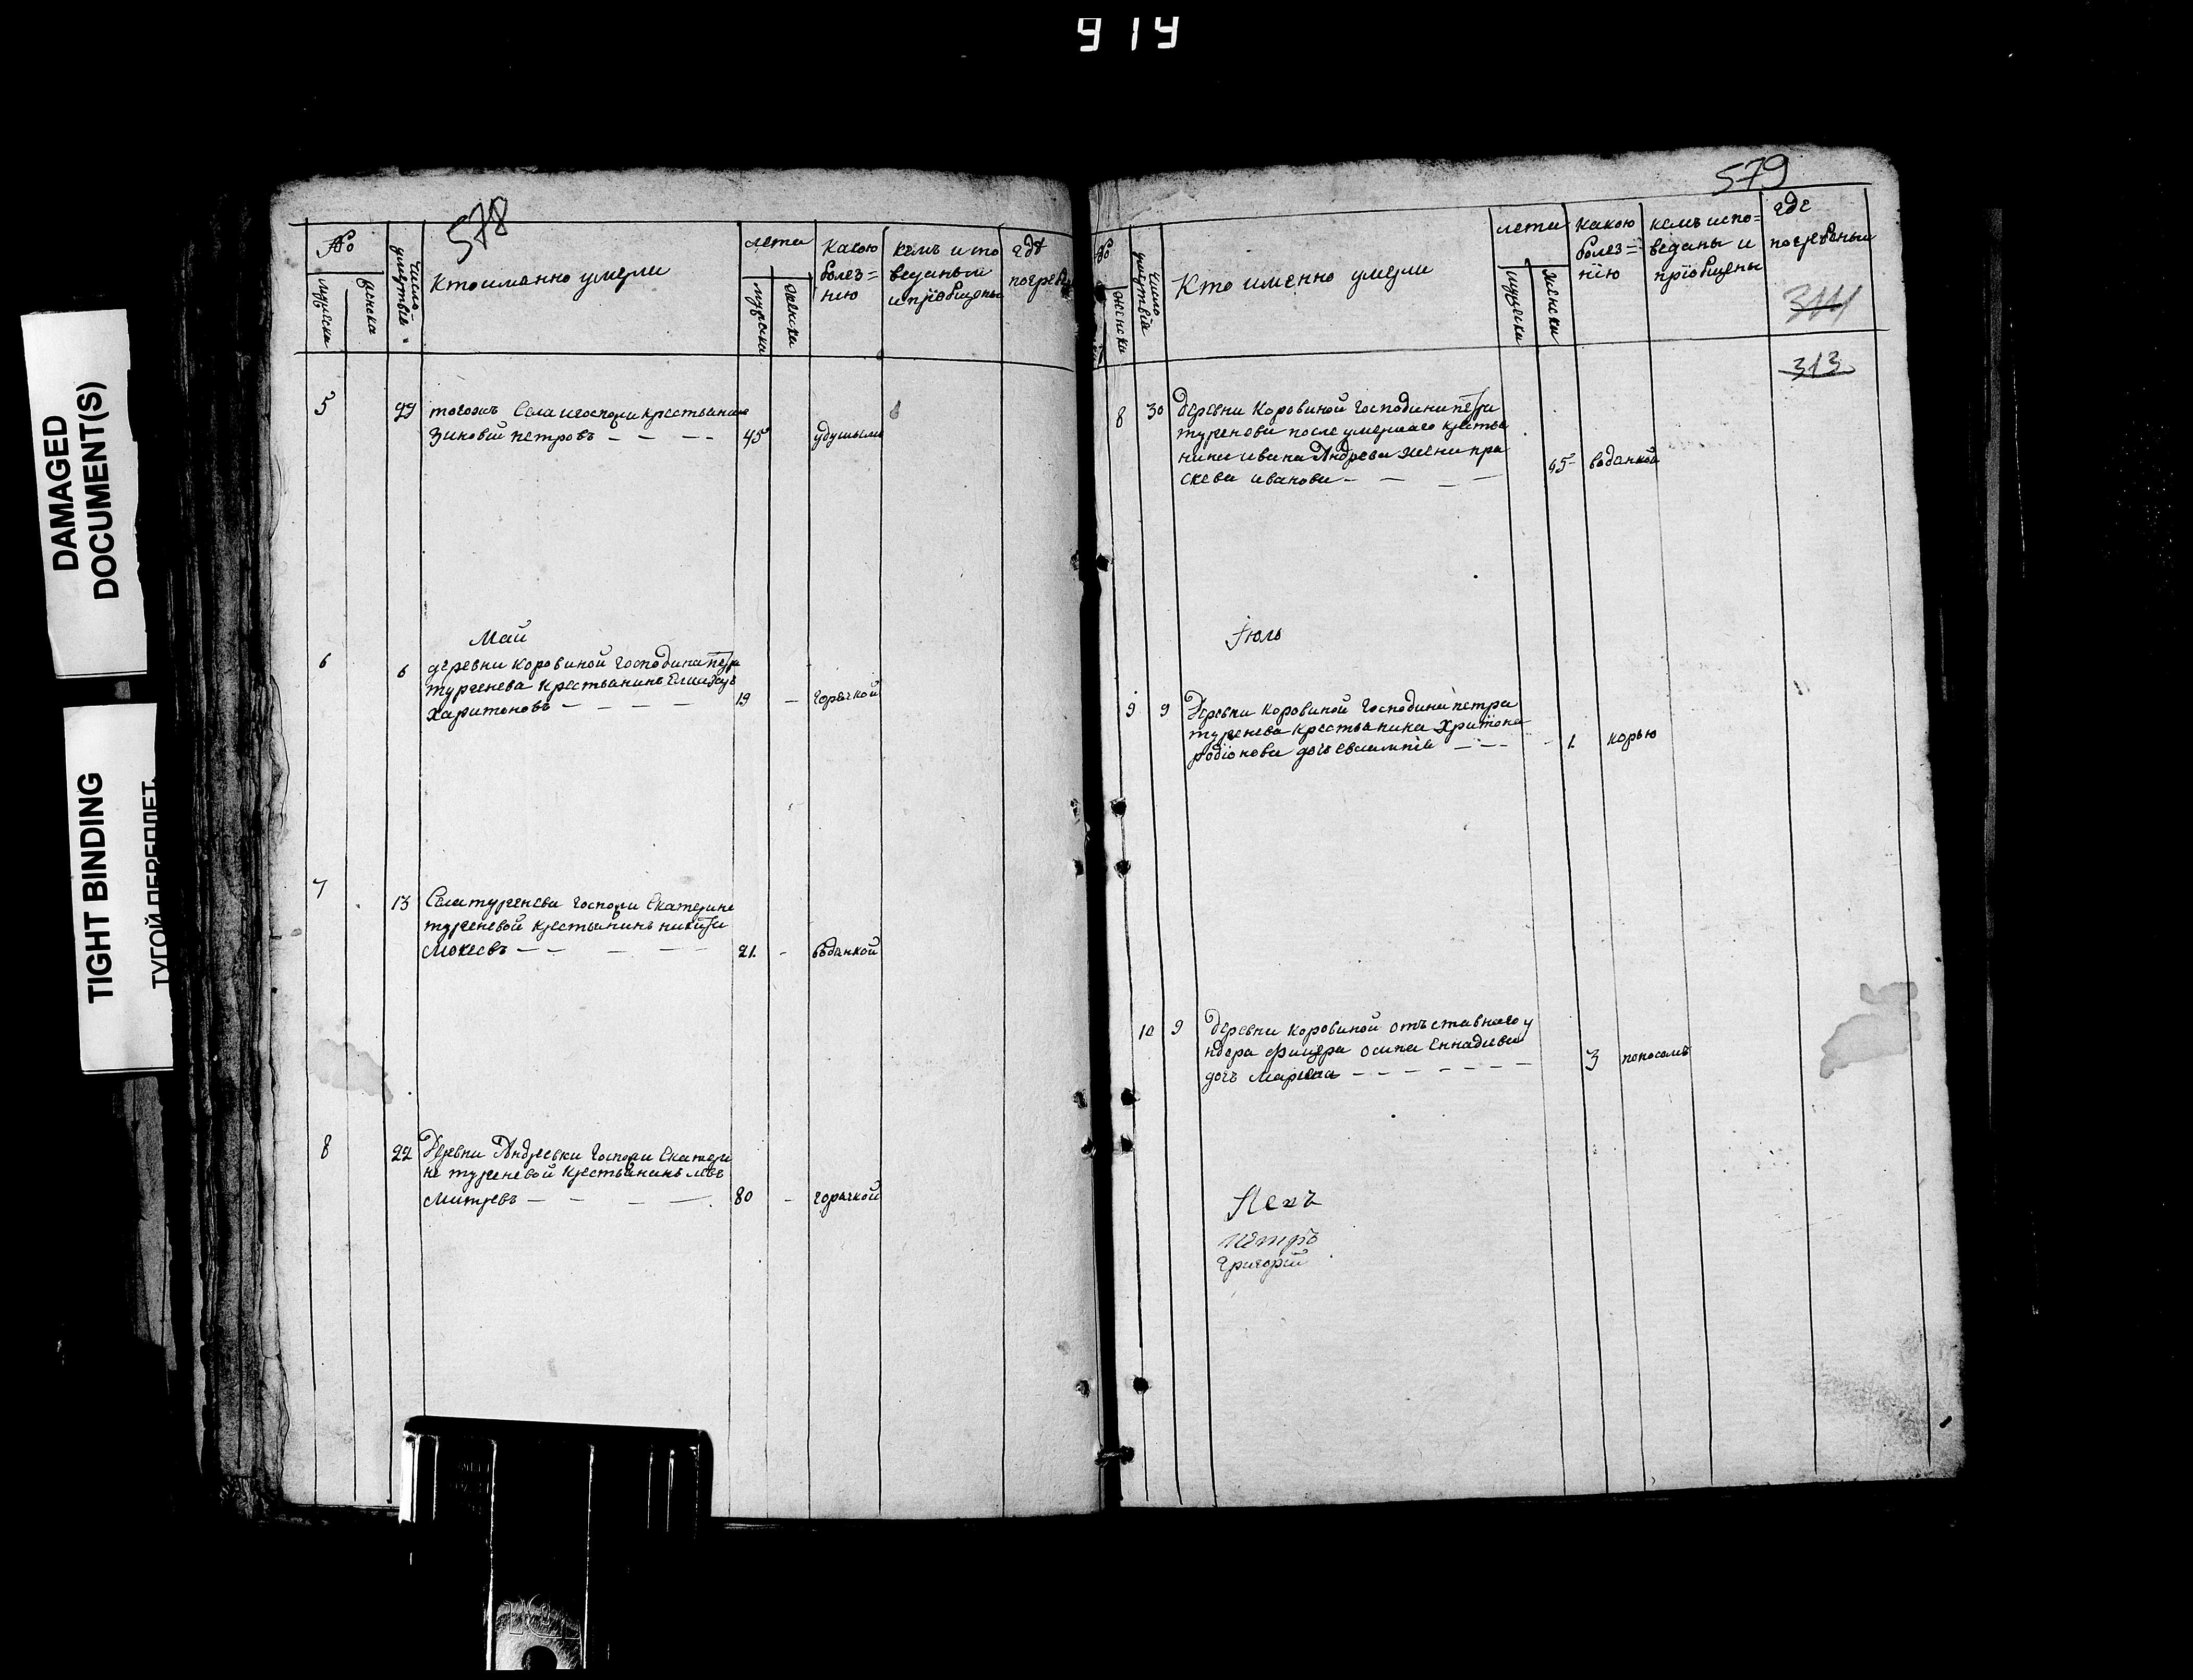 914
DAMAGED
DOCUMENT(S)
TIGHT BINDING
ТУГОЙ ПЕРЕПЛЕТ
578
№
мужеска
женска
число умертвiя
Кто имянно умерли
лета
мужеска
женска
какою
болез=
нию
кемъ испо
веданы и
и прiобщены
гдѣ
погребе
5 29 тогожъ села и госпожи крестьянинъ
Зиновей петровъ — — — 45 удушьемъ
Май
6 6 деревни коровиной господина петра
тургенева крестьянинъ
харитоновъ — — — — 19 — горячкой
7 13 Села тургенева госпожи Екатерине
тургеневой крестьянинъ никита
Мокеевъ — — — — 21. - воданкой
8 22 Деревни Андреевки госпожи Екатери
не тургеневой крестьянинъ левъ
митревъ — — — — 80 - горячкой
579
№
женска
число умертвiя
Кто именно умерли
лета
мужески
женски
какою
болез=
нiю
кемъ испо=
веданы и
прiобщены
где
погребены
314
313
8 30 деревни Коровиной господина петра
тургенева после умершаго крестья
нина ивана Андрева жена пра
скева иванова — — — — 45 воданкой
Iюль
9 9 Деревни Коровиной господина петра
тургенева крестьянина Харитона
родiонова дочь евлампiя — — 1. корью
10 9 деревни коровиной отъставнаго у
ндера офицера осипа Еннадиева
дочь Марина — — — — — — 3 поносомъ
петръ
григорiй